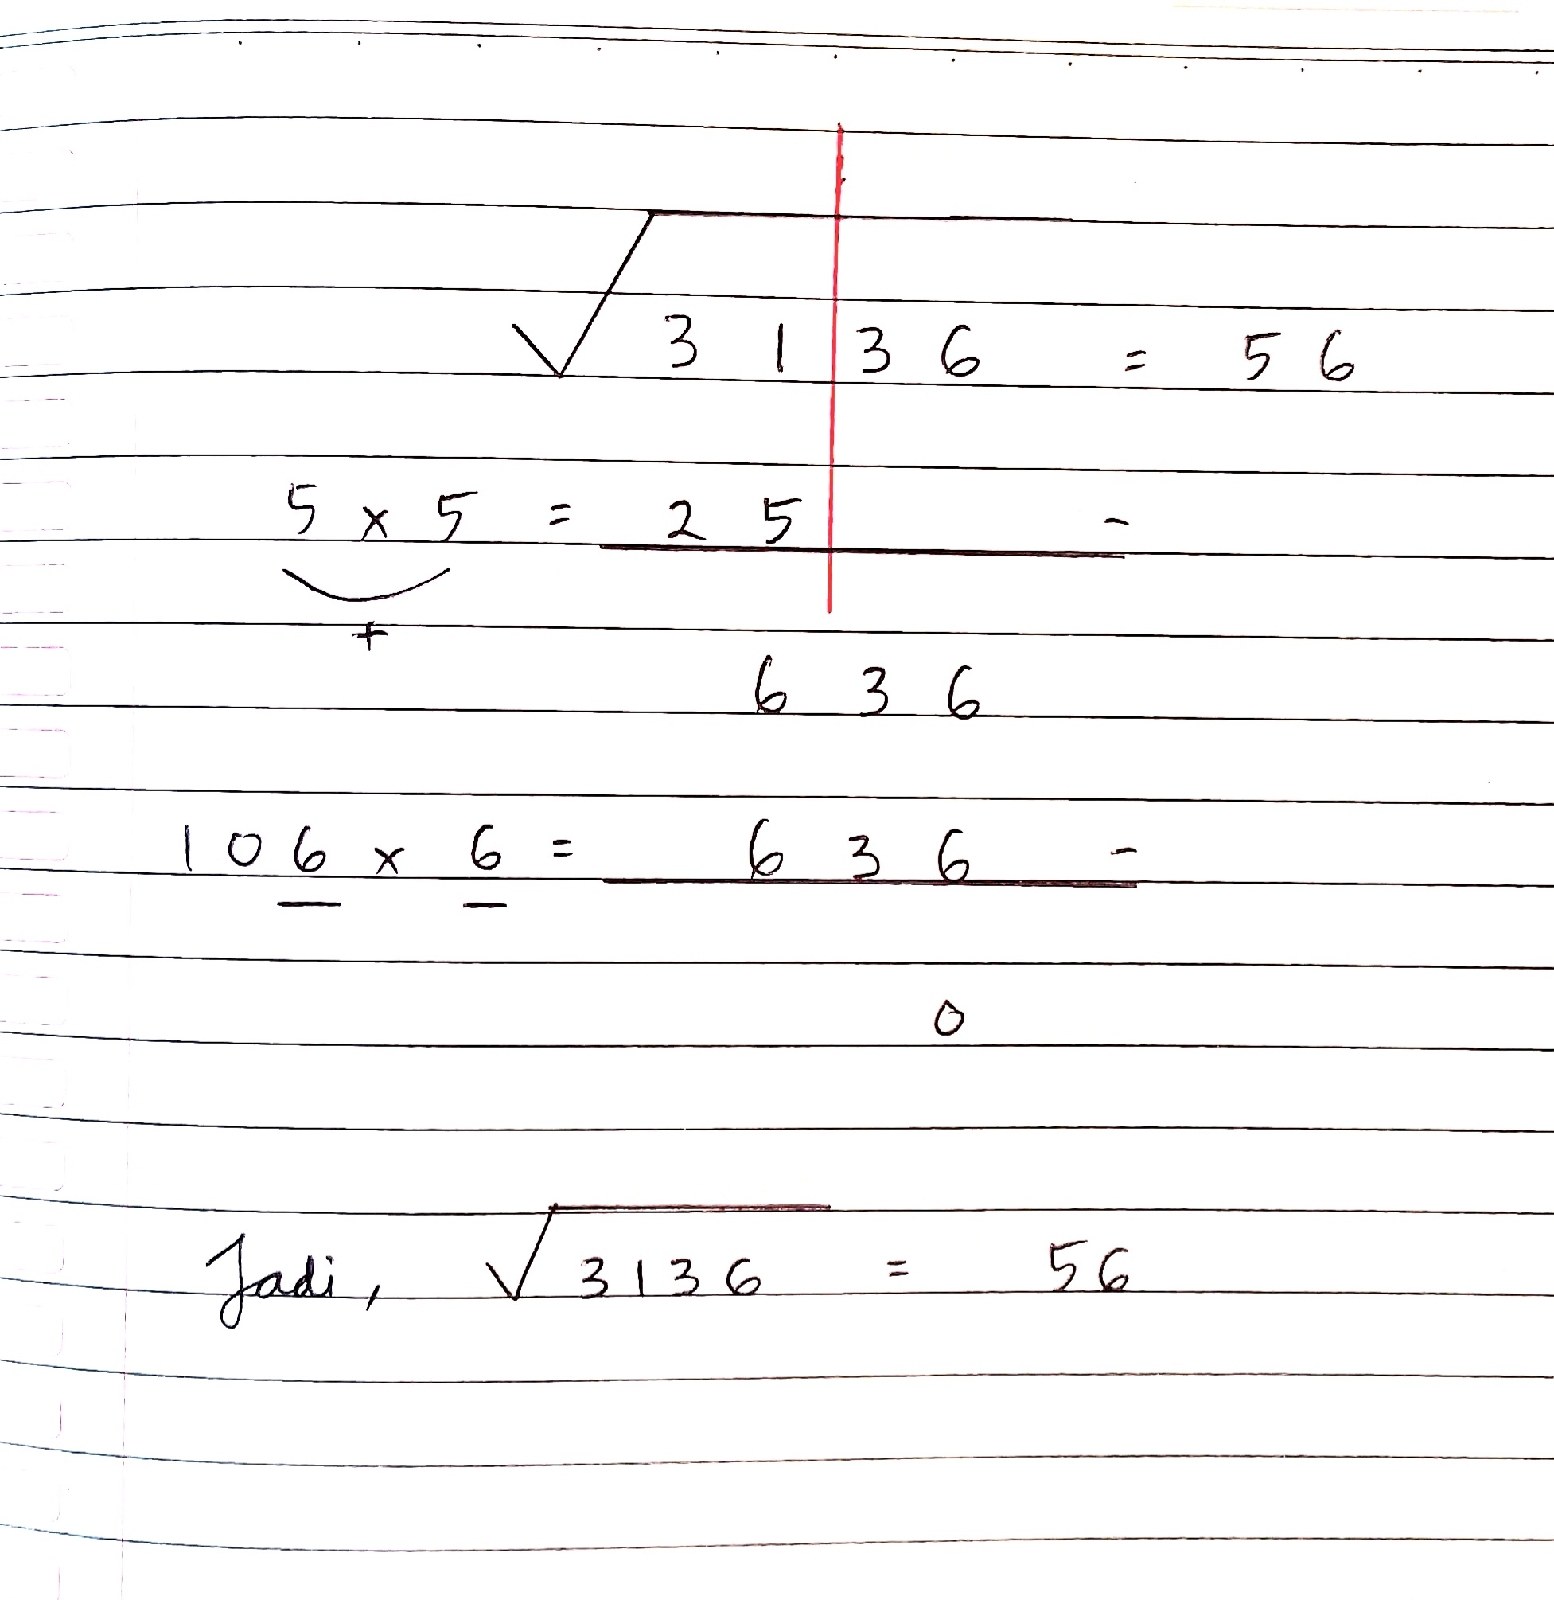 √3136 = 56
5 x 5 = 25 -
+
636
106 x 6 = 636 -
0
Jadi, √3136 = 56